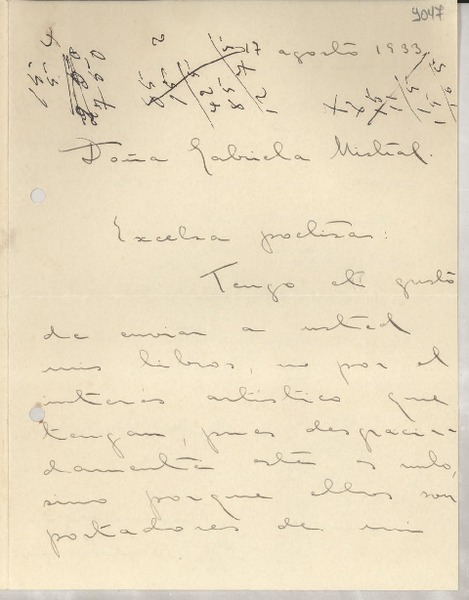 9047
17 agosto 1933
Doña Gabriela Mistral.
Excelsa poetisa:
Tengo el gusto
de enviar a usted
mis libros, no por el
interés artístico que
tengan, pues desgracia-
damente este es nulo,
sino porque ellos son
portadores de mi